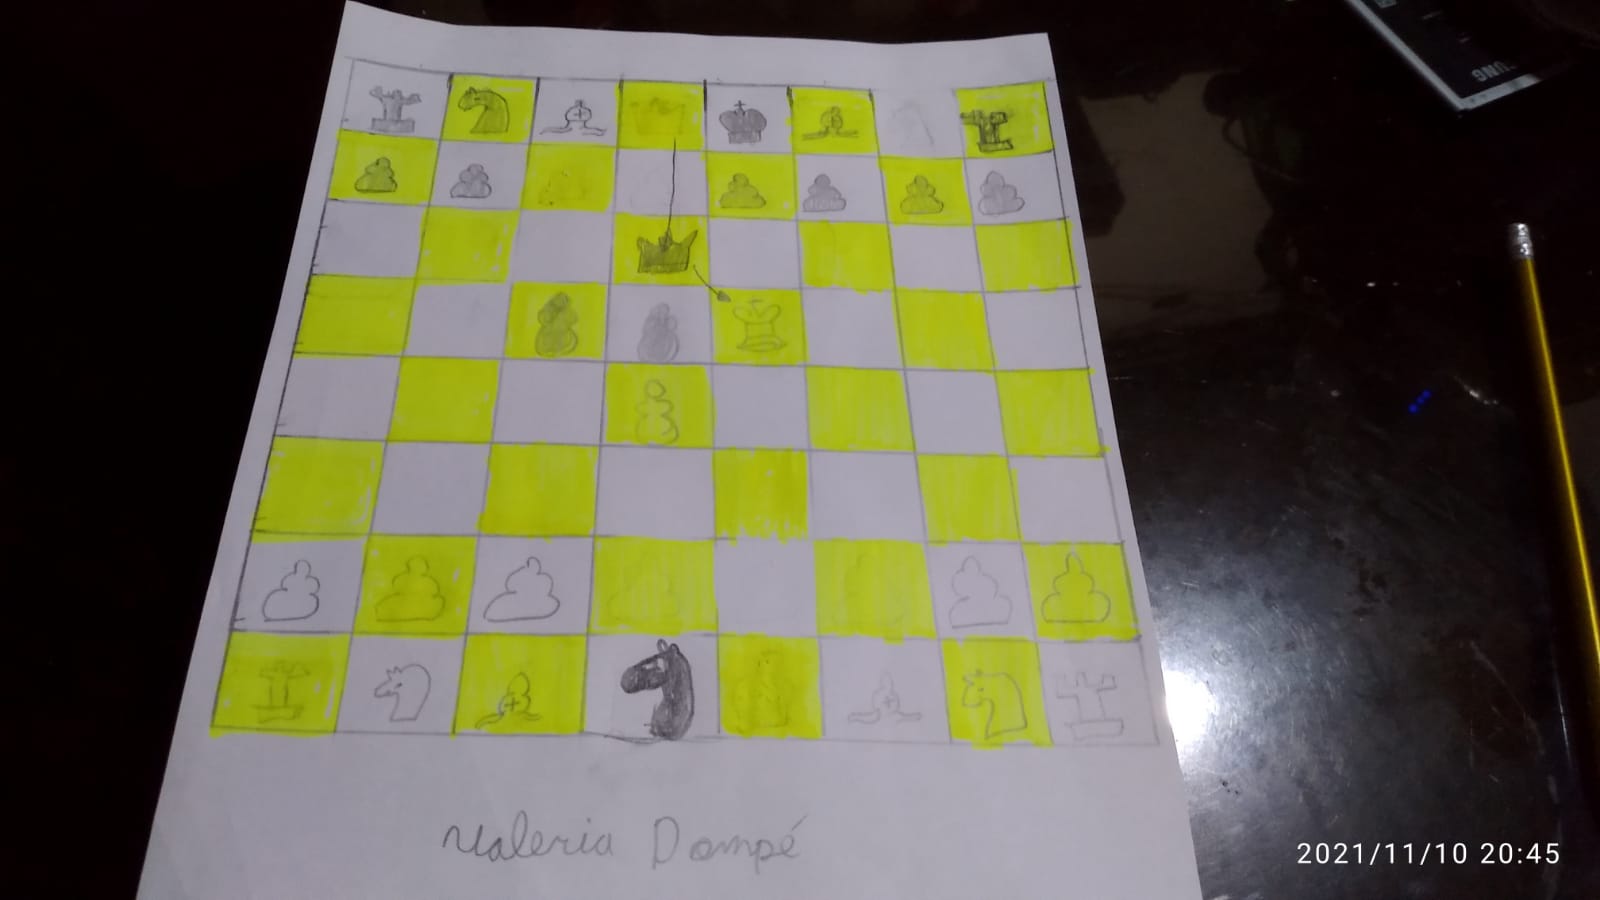 Valeria Dompé
2021/11/10 20:45